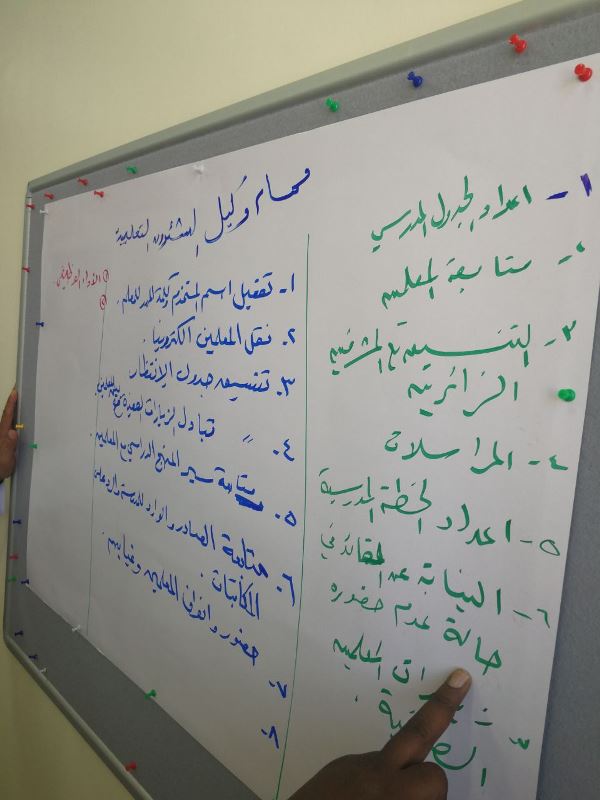 مهام وكيل الشئون التعليمية
١- اعداد الجدول المدرسي
٢- متابعة المعلمين
٣- التنسيق مع المشرفين
الزائرين
٤- المراسلات
٥- اعداد الخطة المدرسية
٦- النيابة عن القائد في
حالة عدم حضوره
المعلمين
١- تفعيل اسم المستخدم وكلمة المرور للمعلم.
٢- نقل المعلمين الكترونيا.
٣- تنسيق جدول الانتظار
٤- " تبادل الزيارات الصفية
٥- متابعة سير المنهج الدراسي مع المعلمين
٦- متابعة الصادر والوارد للمدرسة والرد على
المكاتبات.
٧- حضور وانصراف المعلمين وغيابهم.
٨-